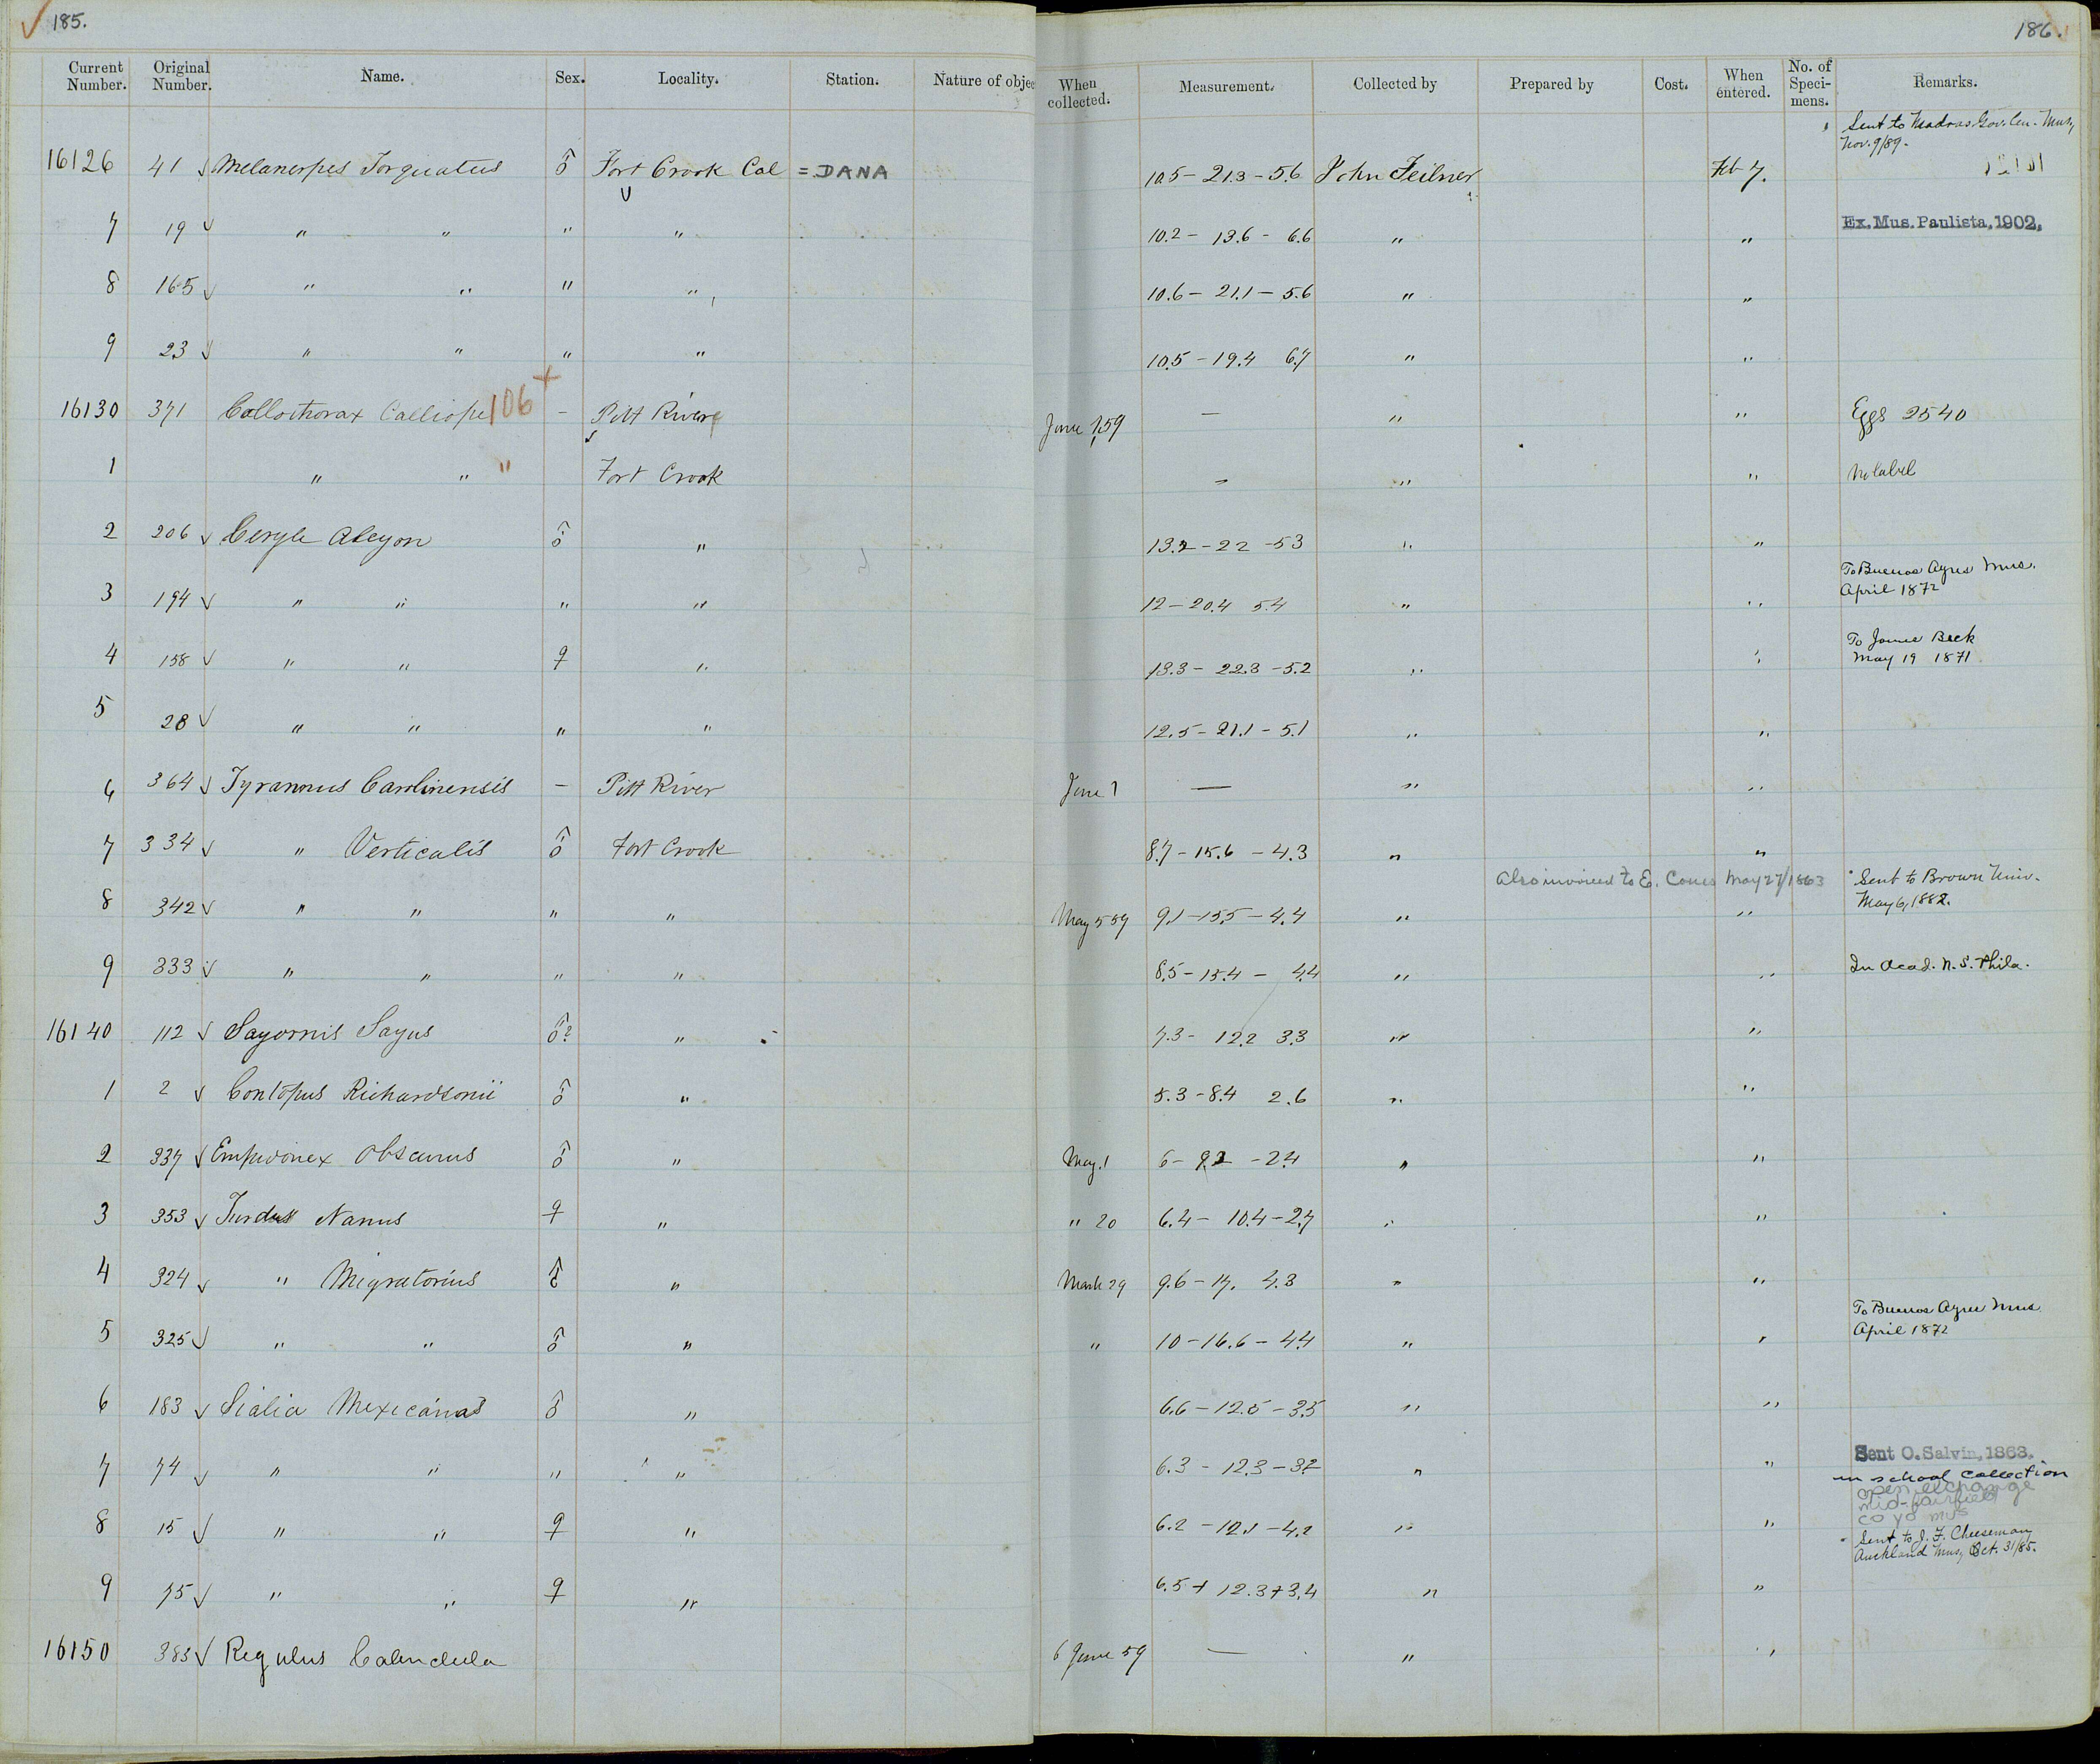 185.
186.
Current Number. Original Number. Name. Sex. Locality. Station. Nature of objec When collected. Measurement. Collected by Prepared by Cost. When entered. No. of Speci- mens. Remarks.
Sent to Madras Gov. Cen. Mus,
Nov. 9/89.
16126 41 Melanerpes Torquatus ♂ Fort Crook Cal = DANA 10.5 - 21.3 - 5.6 John Feilner Feb 7.
7 19 " " " " 10.2 - 13.6 - 6.6 " " Ex. Mus. Paulista, 1902.
8 165 " " " " 10.6 - 21.1 - 5.6 " "
9 23 " " " " 10.5 - 19.4 6.7 " "
16130 371 Callothorax Calliope 106 + - Pitt River June 1, 59 — " " Eggs 2540
1 " " " Fort Crook - " " No label
2 206 Ceryle Alcyon ♂ " 13.2 - 22 - 53 " "
To Buenos Ayres Mus.
3 194 " " " " 12 - 20.4 5.4 " " April 1872
To James Beck
4 158 " " ♀ " 13.3 - 22.3 - 5.2 " " May 19 1871
5 28 " " " " 12.5 - 21.1 - 5.1 " "
6 364 Tyrannus Carolinensis - Pitt River June 1 — " "
7 334 " Verticalis ♂ Fort Crook 8.7 - 15.6 - 4.3 " "
Also invoiced to E. Coues May 27/1863 Sent to Brown Univ.
8 342 " " " " May 5 59 9.1 - 15.5 - 4.4 " " May 6, 1882.
9 333 " " " " 8.5 - 15.4 - 4.4 " " In Acad. N. S. Phila.
16140 112 Sayornis Sayus ♂? " 7.3 - 12.2 3.3 " "
1 2 Contopus Richardsonii ♂ " 5.3 - 8.4 2.6 " "
2 337 Empidonex Obscurus ♂ " May. 1 6 - 9.2 - 2.4 " "
3 353 Turdus Nanus ♀ " " 20 6.4 - 10.4 - 2.7 " "
4 324 " Migratorius ♂ " March 29 9.6 - 17. 4.3 " "
To Buenos Ayres Mus.
5 325 " " ♂ " " 10 - 16.6 - 4.4 " " April 1872
6 183 Sialia Mexicana ♂ " 6.6 - 12.5 - 3.5 " "
Sent O. Salvin, 1863.
7 74 " " " " 6.3 - 12.3 - 32 " "
in school collection
open exchange
mid-fairfield
co yd mus
8 15 " " ♀ " 6.2 - 12.1 - 4.2 " "
Sent to J. F. Cheeseman
Auckland Mus, Oct. 31/85.
9 75 " " ♀ " 6.5 + 12.3 + 3.4 " "
16150 383 Regulus Calendula 6 June 59 — " "